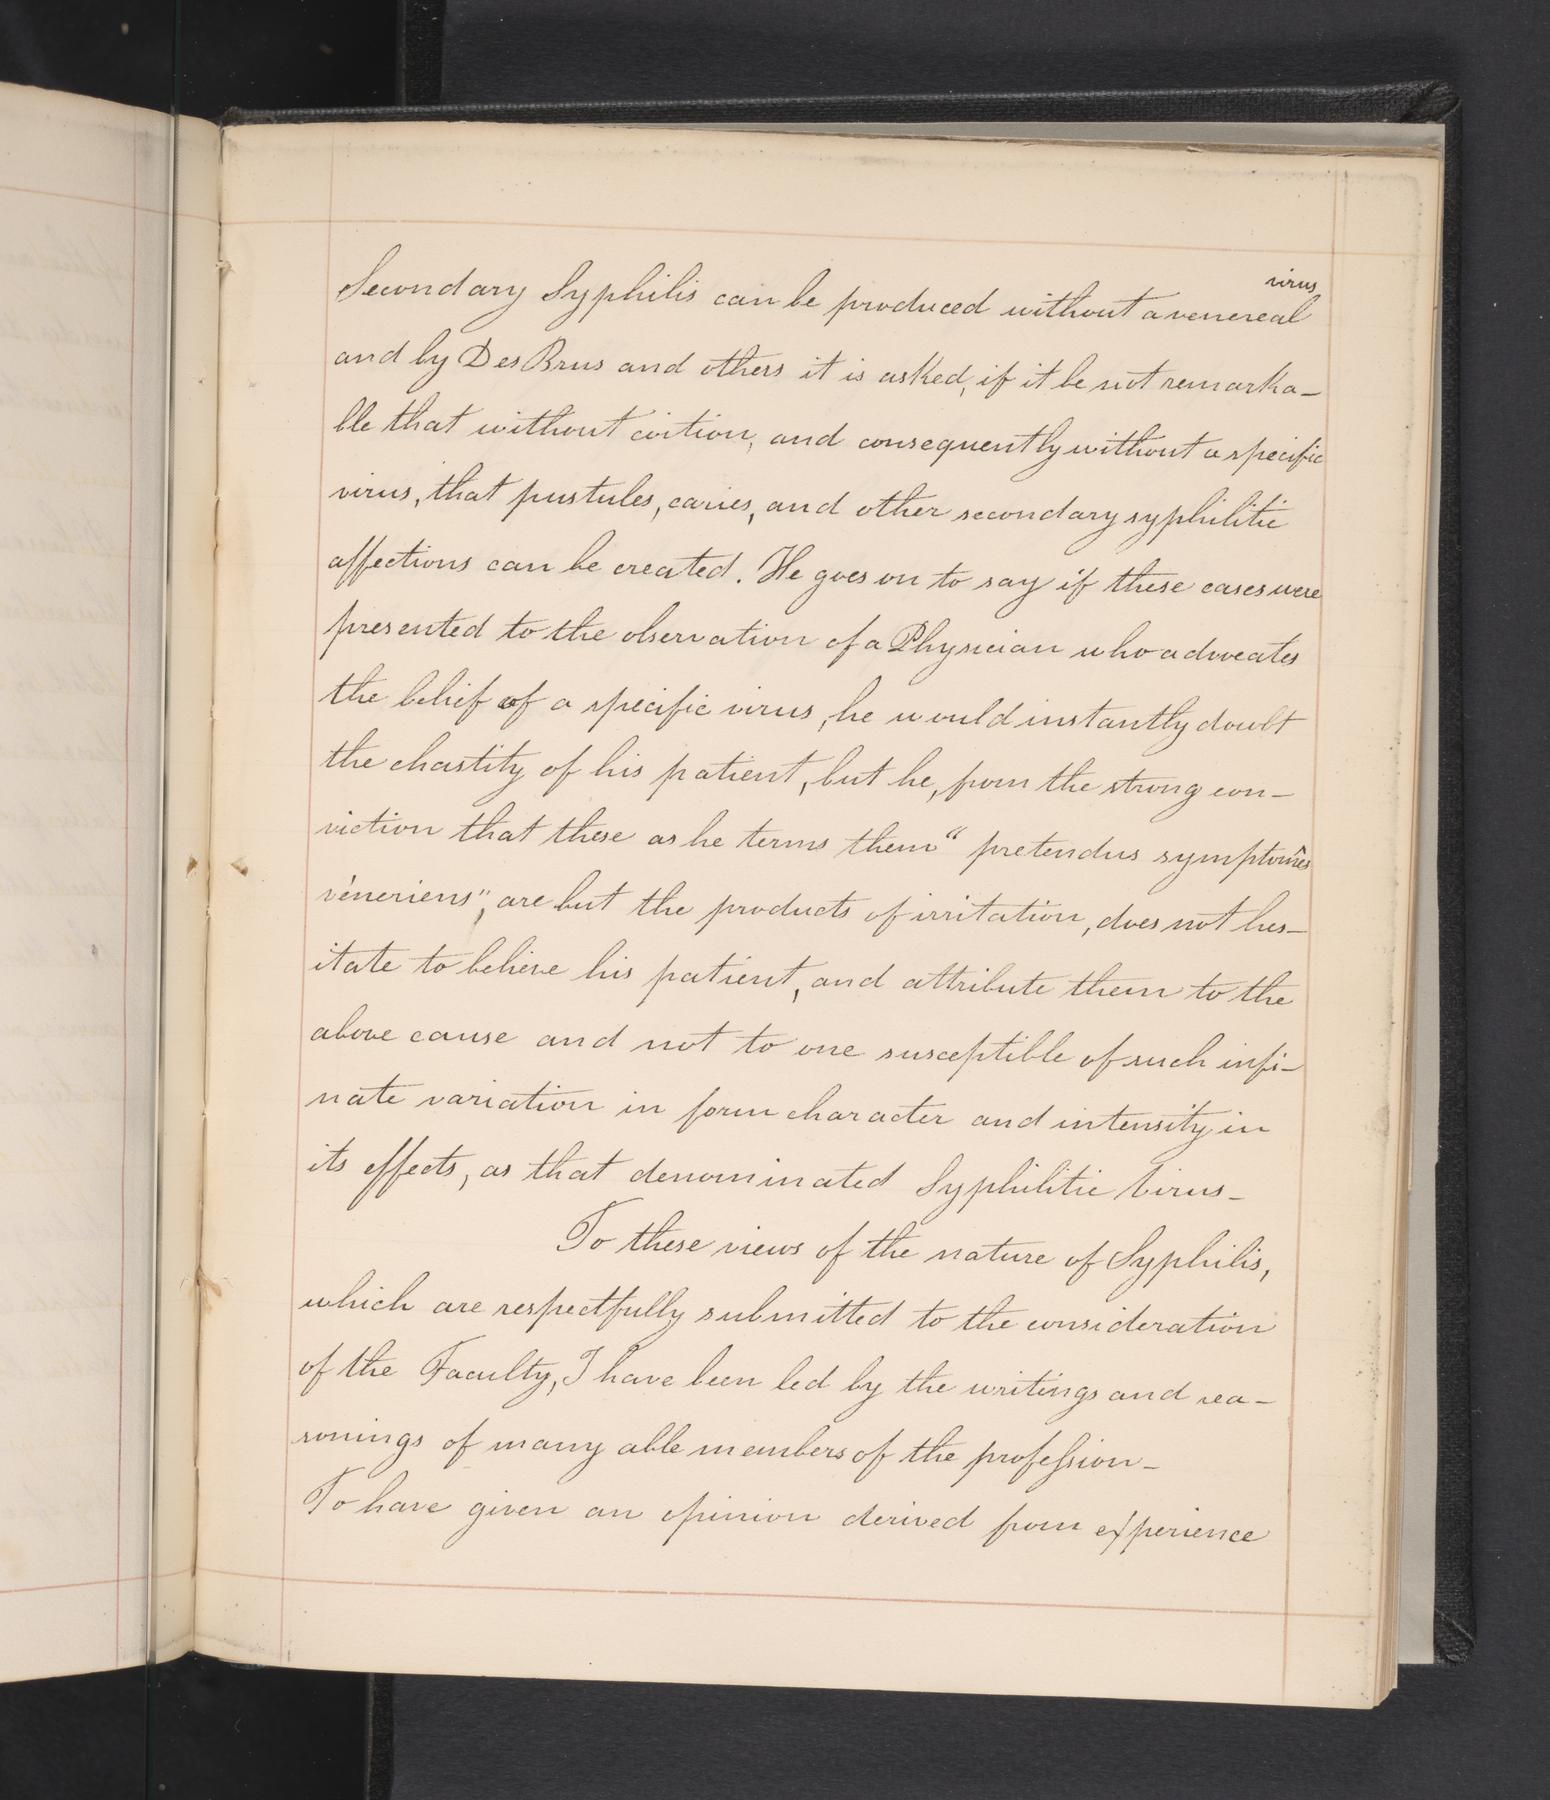 virus
Secondary Syphilis can be produced without a venereal
and by Des Brus and others it is asked, if it be not remarka-
ble that without coition, and consequently without a specific
virus, that pustules, caries, and other secondary syphilitic
affections can be created. He goes on to say if these cases were
presented to the observation of a Physician who advocates
the belief of a specific virus, he would instantly doubt
the chastity of his patient, but he, from the strong con-
viction that these as he terms them "pretendus symptomês
véneriens", are but the products of irritation, does not hes-
itate to believe his patient, and attribute them to the
above cause and not to one susceptible of such infi-
nate variation in form character and intensity in
its effects, as that denominated Syphilitic Virus-
To these views of the nature of Syphilis,
which are respectfully submitted to the consideration
of the Faculty, I have been led by the writings and rea-
sonings of many able members of the profession-
To have given an opinion derived from experience